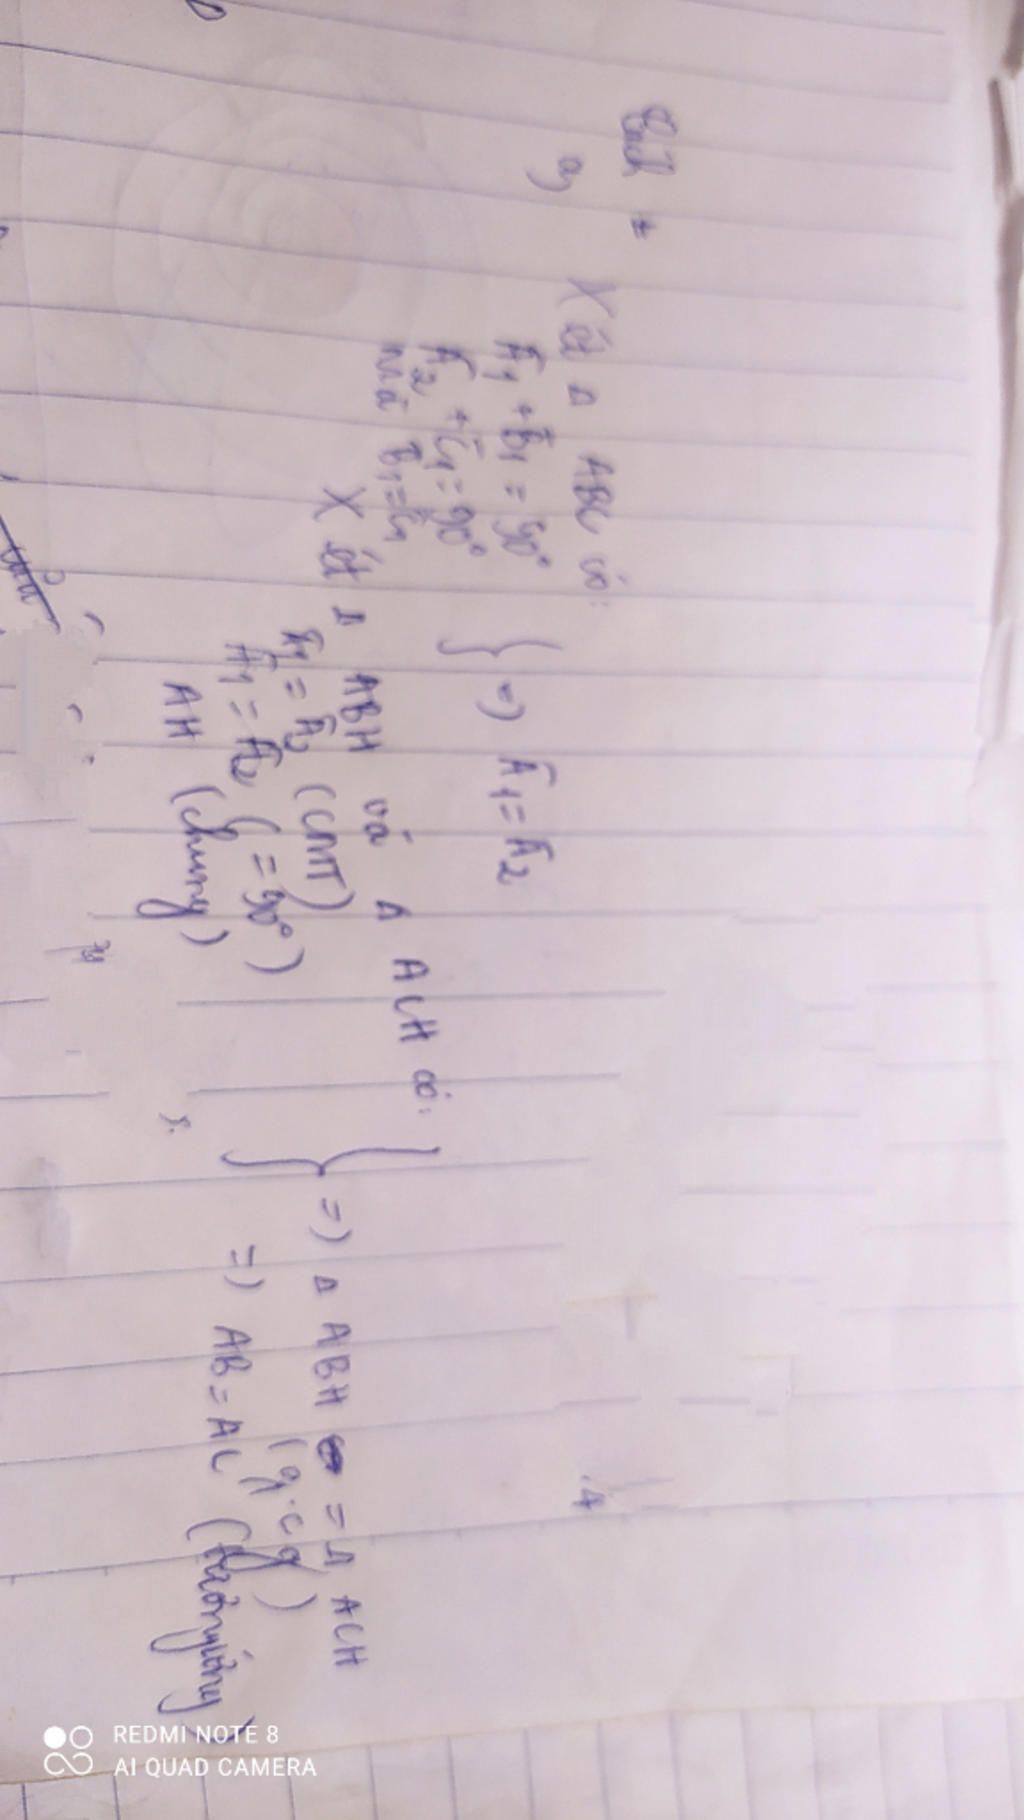 Cách 1
a,
Xét Δ ABC có:
Â1 + B̂1 = 90°
Â2 + Ĉ1 = 90°
mà B̂1 = Ĉ1
} => Â1 = Â2
Xét Δ ABH và Δ ACH có:
Â1 = Â2 (cmt)
Ĥ1 = Ĥ2 (= 90°)
AH (chung)
} => Δ ABH = Δ ACH
(g.c.g)
=> AB = AC (tương ứng)
REDMI NOTE 8
AI QUAD CAMERA